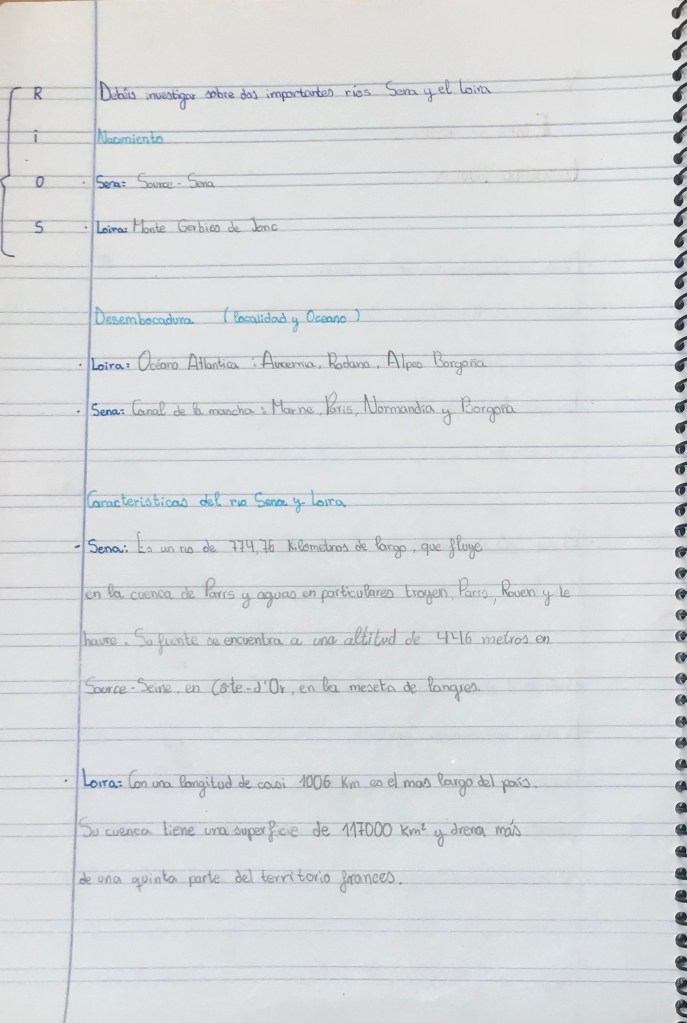 R Debéis investigar sobre dos importantes ríos Sena y el Loira
i Nacimiento
O · Sena: Source - Sena
S · Loira: Monte Gerbier de Jonc
Desembocadura (localidad y Oceano)
· Loira: Océano Atlantica : Auvernia, Rodano, Alpes Borgoña
· Sena: Canal de la mancha : Marne, Paris, Normandia y Borgoña
Caracteristicas del rio Sena y Loira
- Sena: Es un rio de 774,76 Kilometros de largo, que fluye
en la cuenca de Paris y aguas en particulares troyen, Paris, Rouen y le
havre. Su fuente se encuentra a una altitud de 446 metros en
Source-Seine, en Cote-d'Or, en la meseta de langres.
· Loira: Con una longitud de casi 1006 Km es el mas largo del país.
Su cuenca tiene una superficie de 117000 Km² y drena más
de una quinta parte del territorio frances.